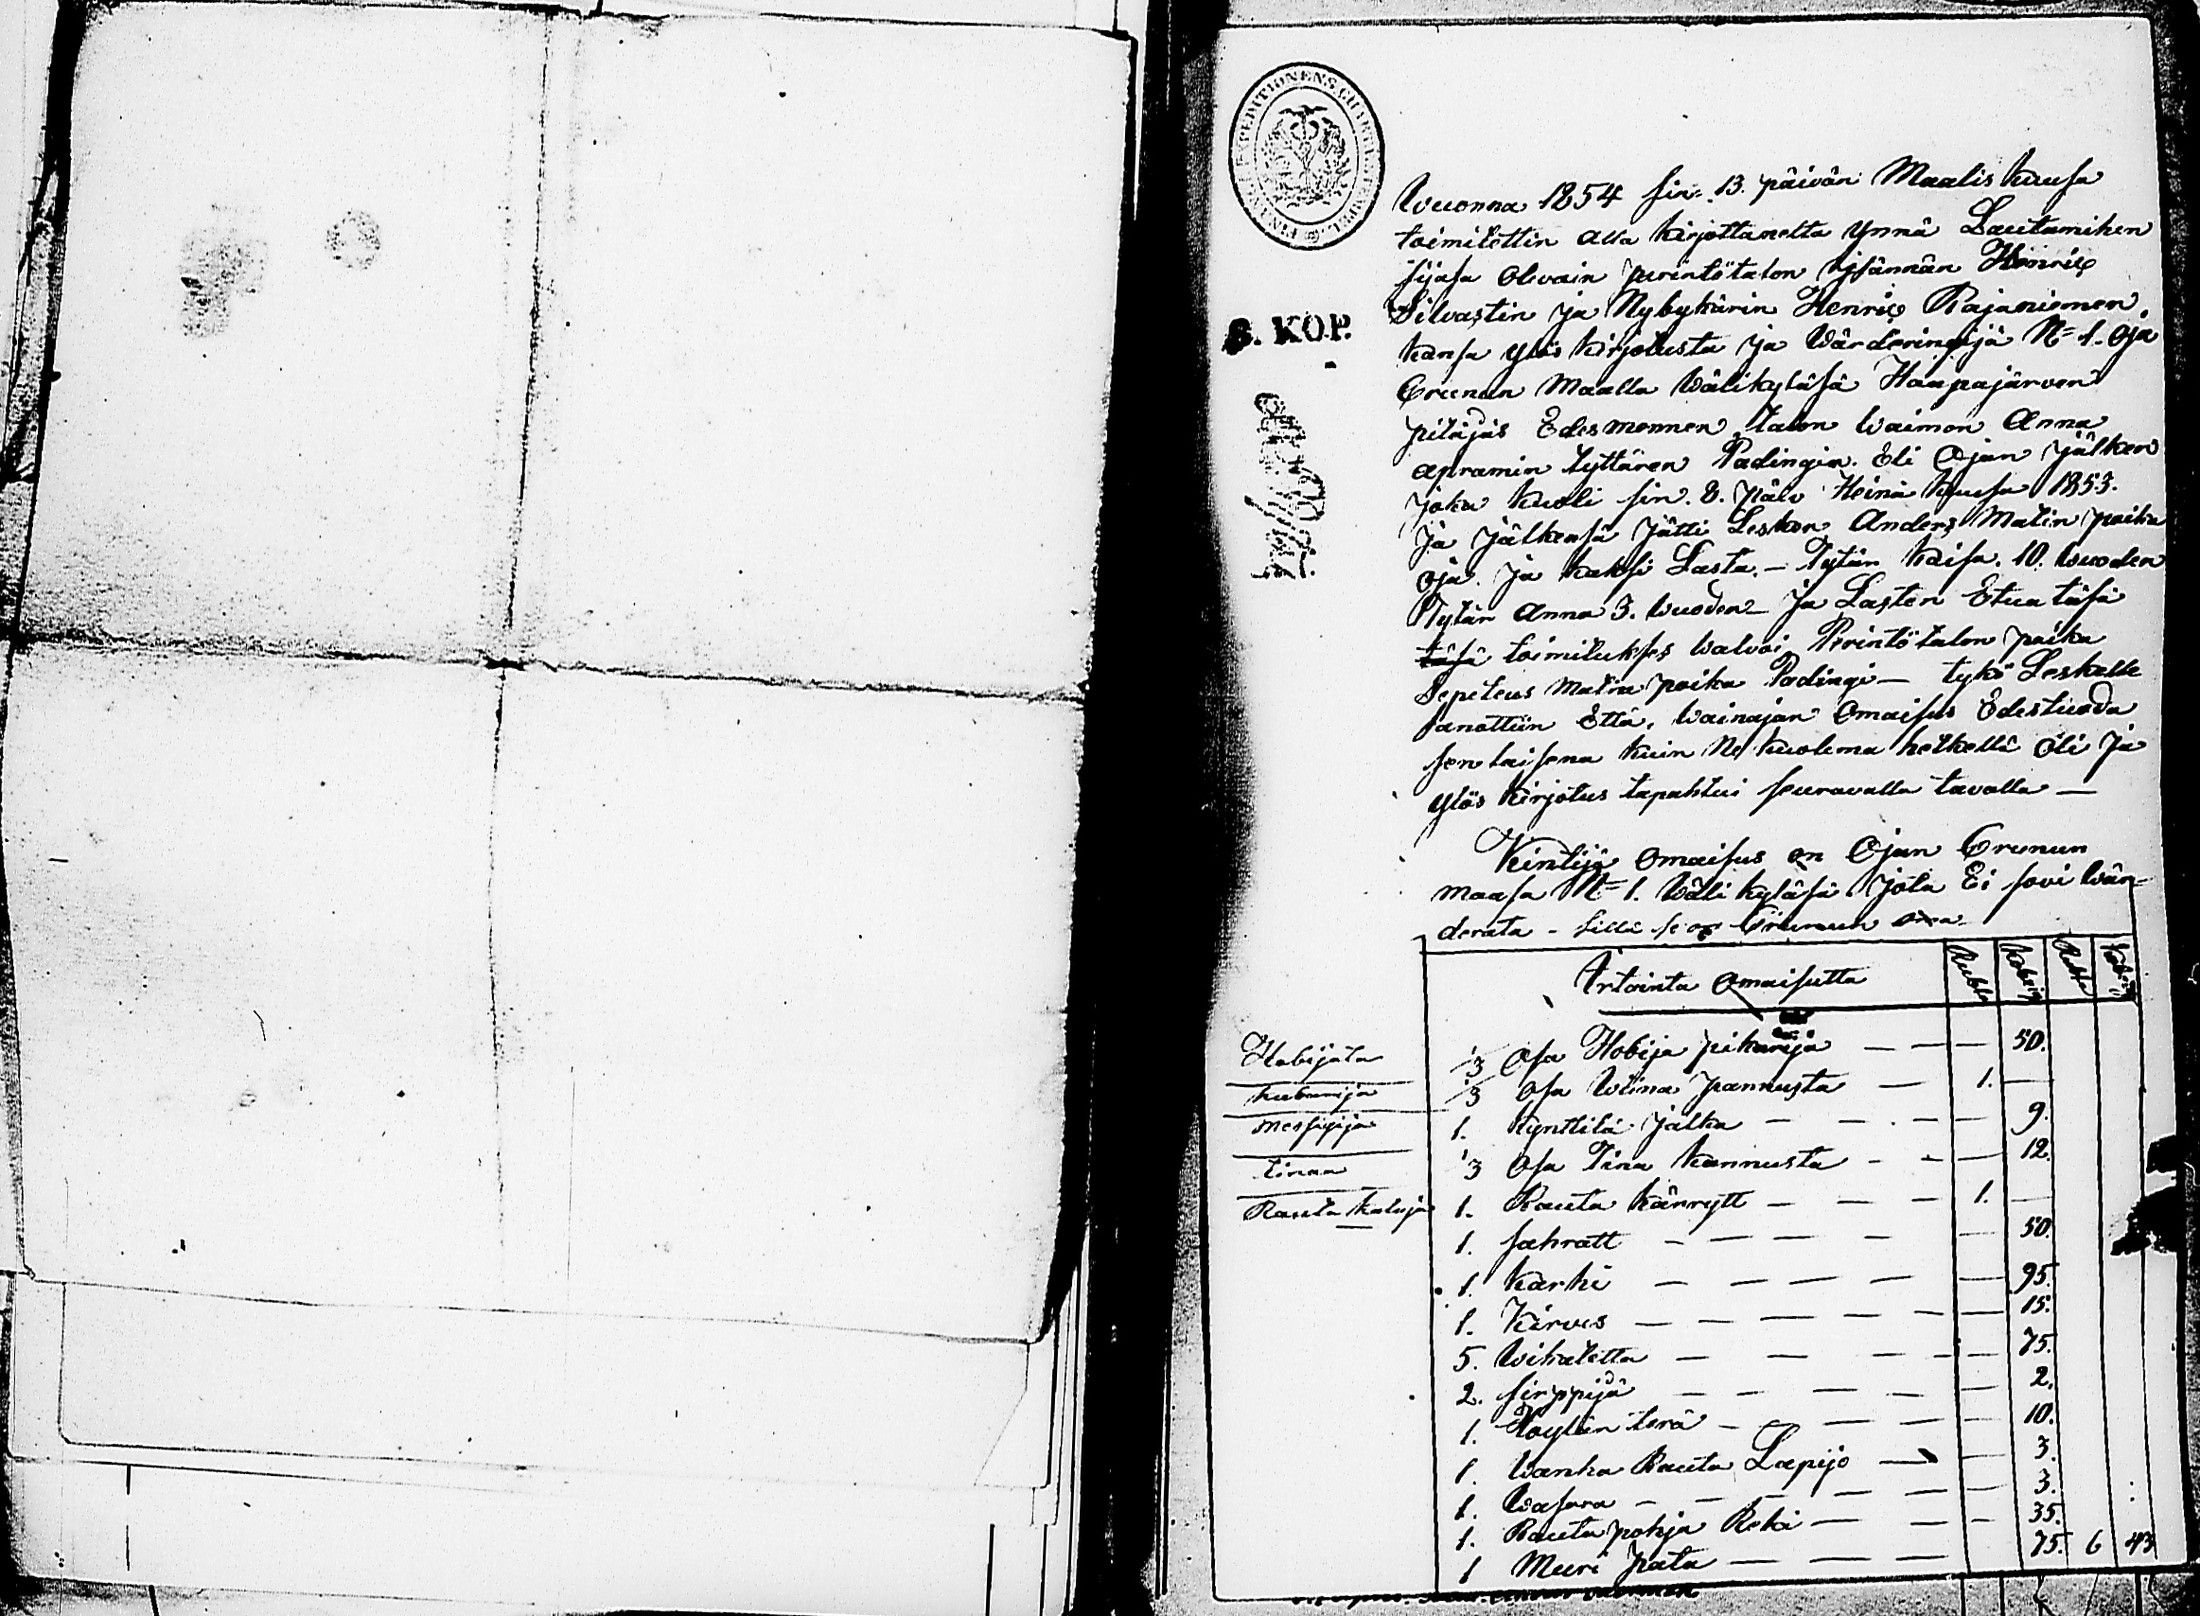 FINANCE EXPEDITIONENS CHARTÆ STEMPEL.
8. KOP.
Wuonna 1854 sin. 13. päivän Maaliskuusa
toimitettin alla kirjottanetta ynnä Lautamihen
sijasa olevain perintötalon ijsännän Henric
Silvastin ja Nybykärin Henric Rajaniemen,
kansa ylös kirjotusta ja Wärderingijä N=1. oja
Crunun Maalla Wälikyläsä Haapajärven
pitäjäs Edesmennen talon Waimon Anna
apramin tyttären Padingin. Eli Ojan jälken
joka kuoli sin. 8. päiv Heinä kuusa 1853.
ja jälkensä jätti Lesken Anders Matin poika
oja. ja kaksi Lasta. - Tytär Kaisa. 10. wuoden
Tytär Anna 3. wuoden - ja Lasten Etua täsä
täsä toimitukses walvoi Perintötalon poika
Sepeteus Matin poika Padingi - tykö Leskelle
sanottiin Että, wainajan Omaisus Edestuoda
sen laisena kuin Ne kuolema hetkellä oli ja
ylös kirjotus tapahtui seuravalla tavalla -
Kintijä omaisus on Ojan Crunun
maasa N=1. Wälikyläsä Jota Ei sovi Wär-
derata - sillä se on Crunun oma
Irtointa omaisutta Rubla Kopeig Rubla Kopeig
Hobijata 1/3 Osa Hobija pikarija - - - 50.
kuparija 1/3 Osa Wiina pannusta - 1. -
messigija 1. Kynttilä jalka - - - - 9.
tinaa 1/3 Osa Tina kannusta - - - 12.
Rauta kaluja 1. Rauta kärryt - - - 1. -
1. sahratt - - - - - 50.
1. karhi - - - - - 95.
1. Kirves - - - - - - 15.
5. Wikatetta - - - - - 75.
2. sirppijä - - - - - 2.
1. Höylän terä - - - - - 10.
1. Wanha Rauta Lapijo - - 3.
1. Wasara - - - - - - 3.
1. Rauta pohja Reki - - - 35.
1 Muuri pata - - - - 75. 6 43